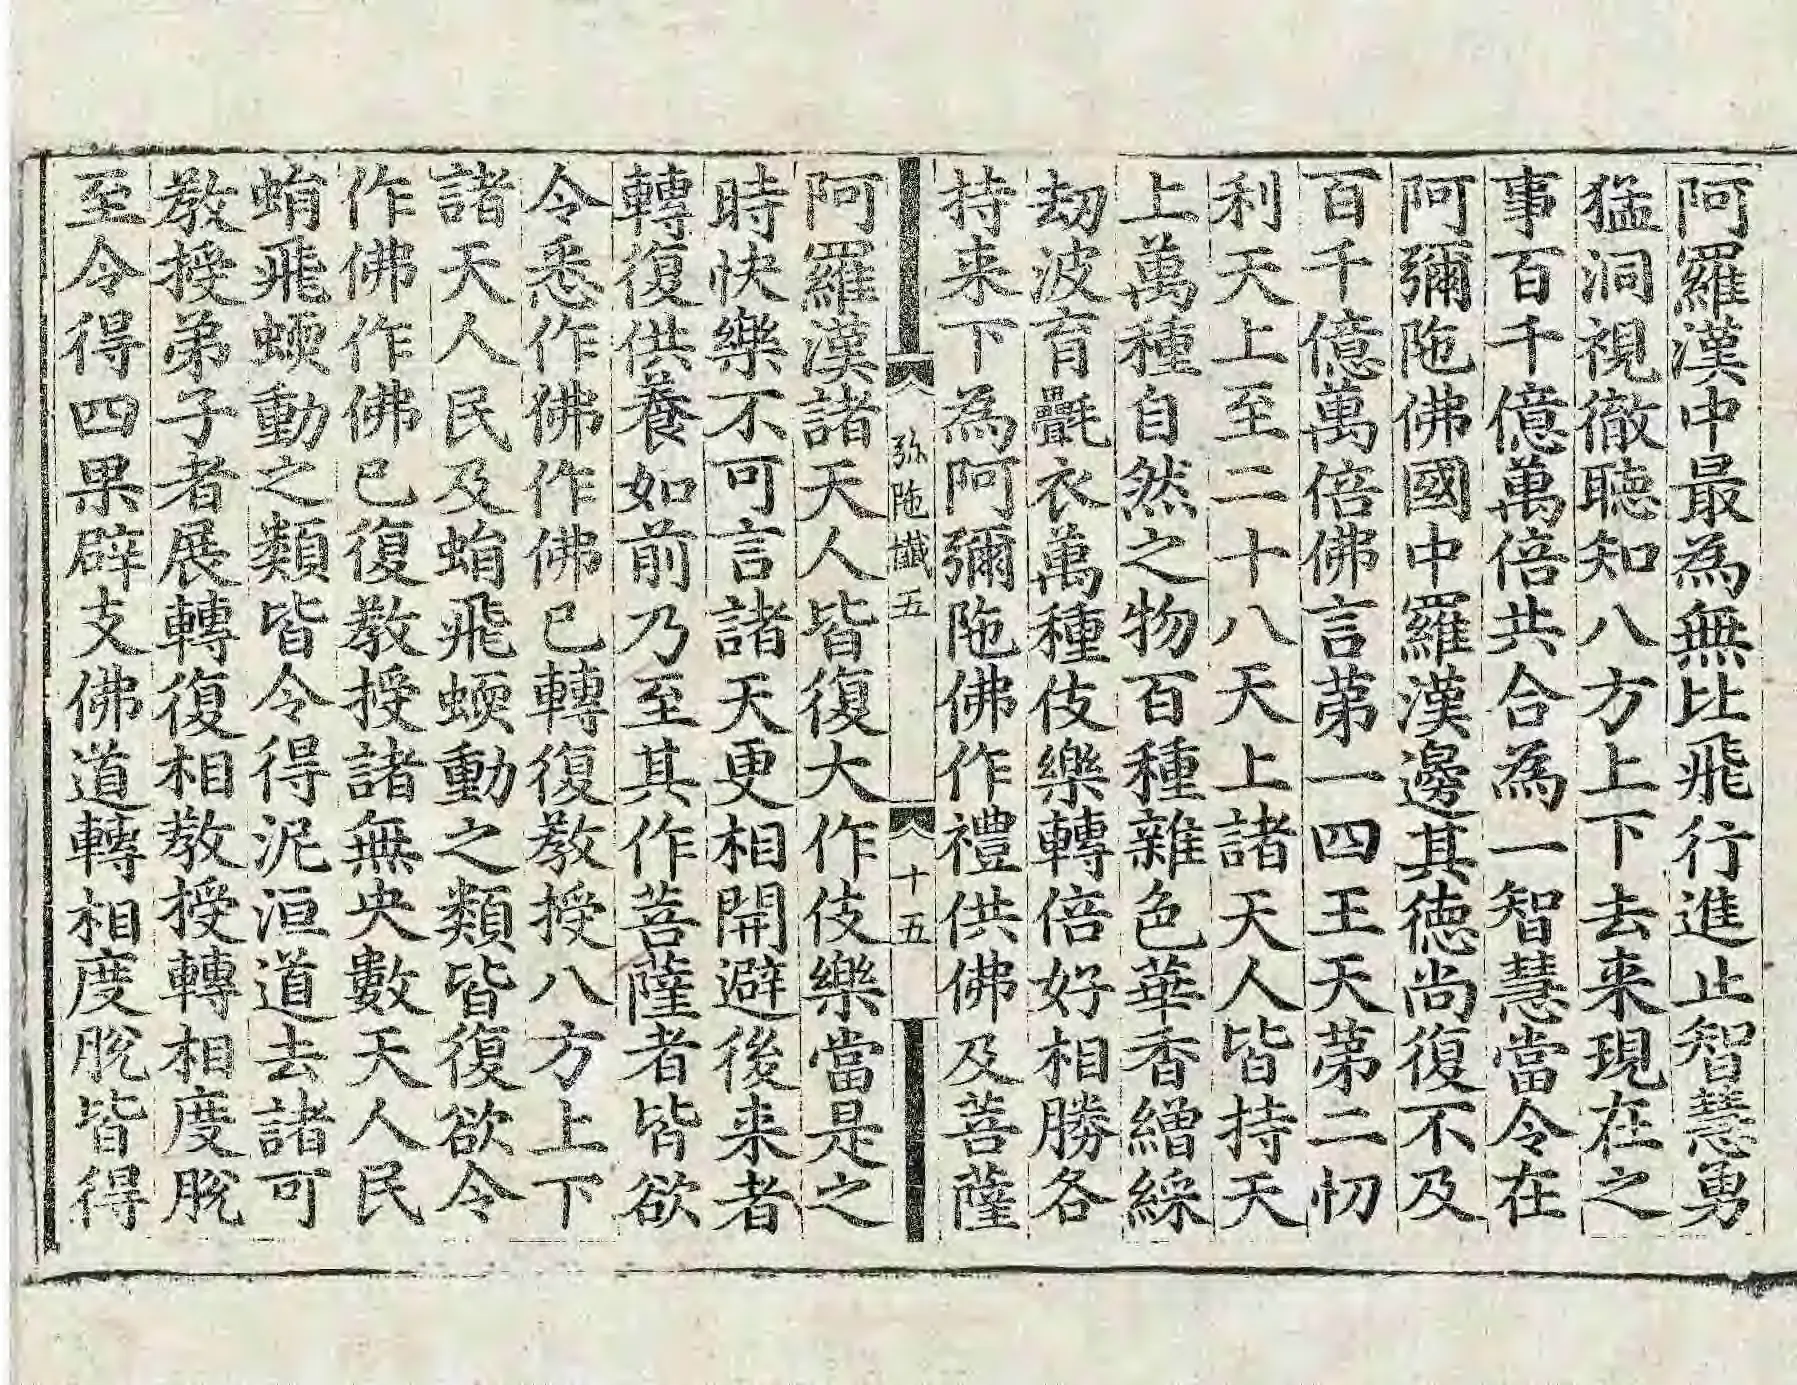 阿羅漢中最為無比飛行進止智慧勇
猛洞視徹聽知八方上下去来現在之
事百千億萬倍共合為一智慧當令在
阿彌陁佛國中羅漢邊其德尚復不及
百千億萬倍佛言第一四王天第二忉
利天上至二十八天上諸天人皆持天
上萬種自然之物百種雜色華香繒綵
劫波育㲲衣萬種伎樂轉倍好相勝各
持来下為阿彌陁佛作禮供佛及菩薩
弥陁懺五
十五
阿羅漢諸天人皆復大作伎樂當是之
時快樂不可言諸天更相開避後来者
轉復供養如前乃至其作菩薩者皆欲
令悉作佛作佛已轉復教授八方上下
諸天人民及蜎飛蝡動之類皆復欲令
作佛作佛已復教授諸無央數天人民
蜎飛蝡動之類皆令得泥洹道去諸可
教授弟子者展轉復相教授轉相度脫
至令得四果辟支佛道轉相度脫皆得